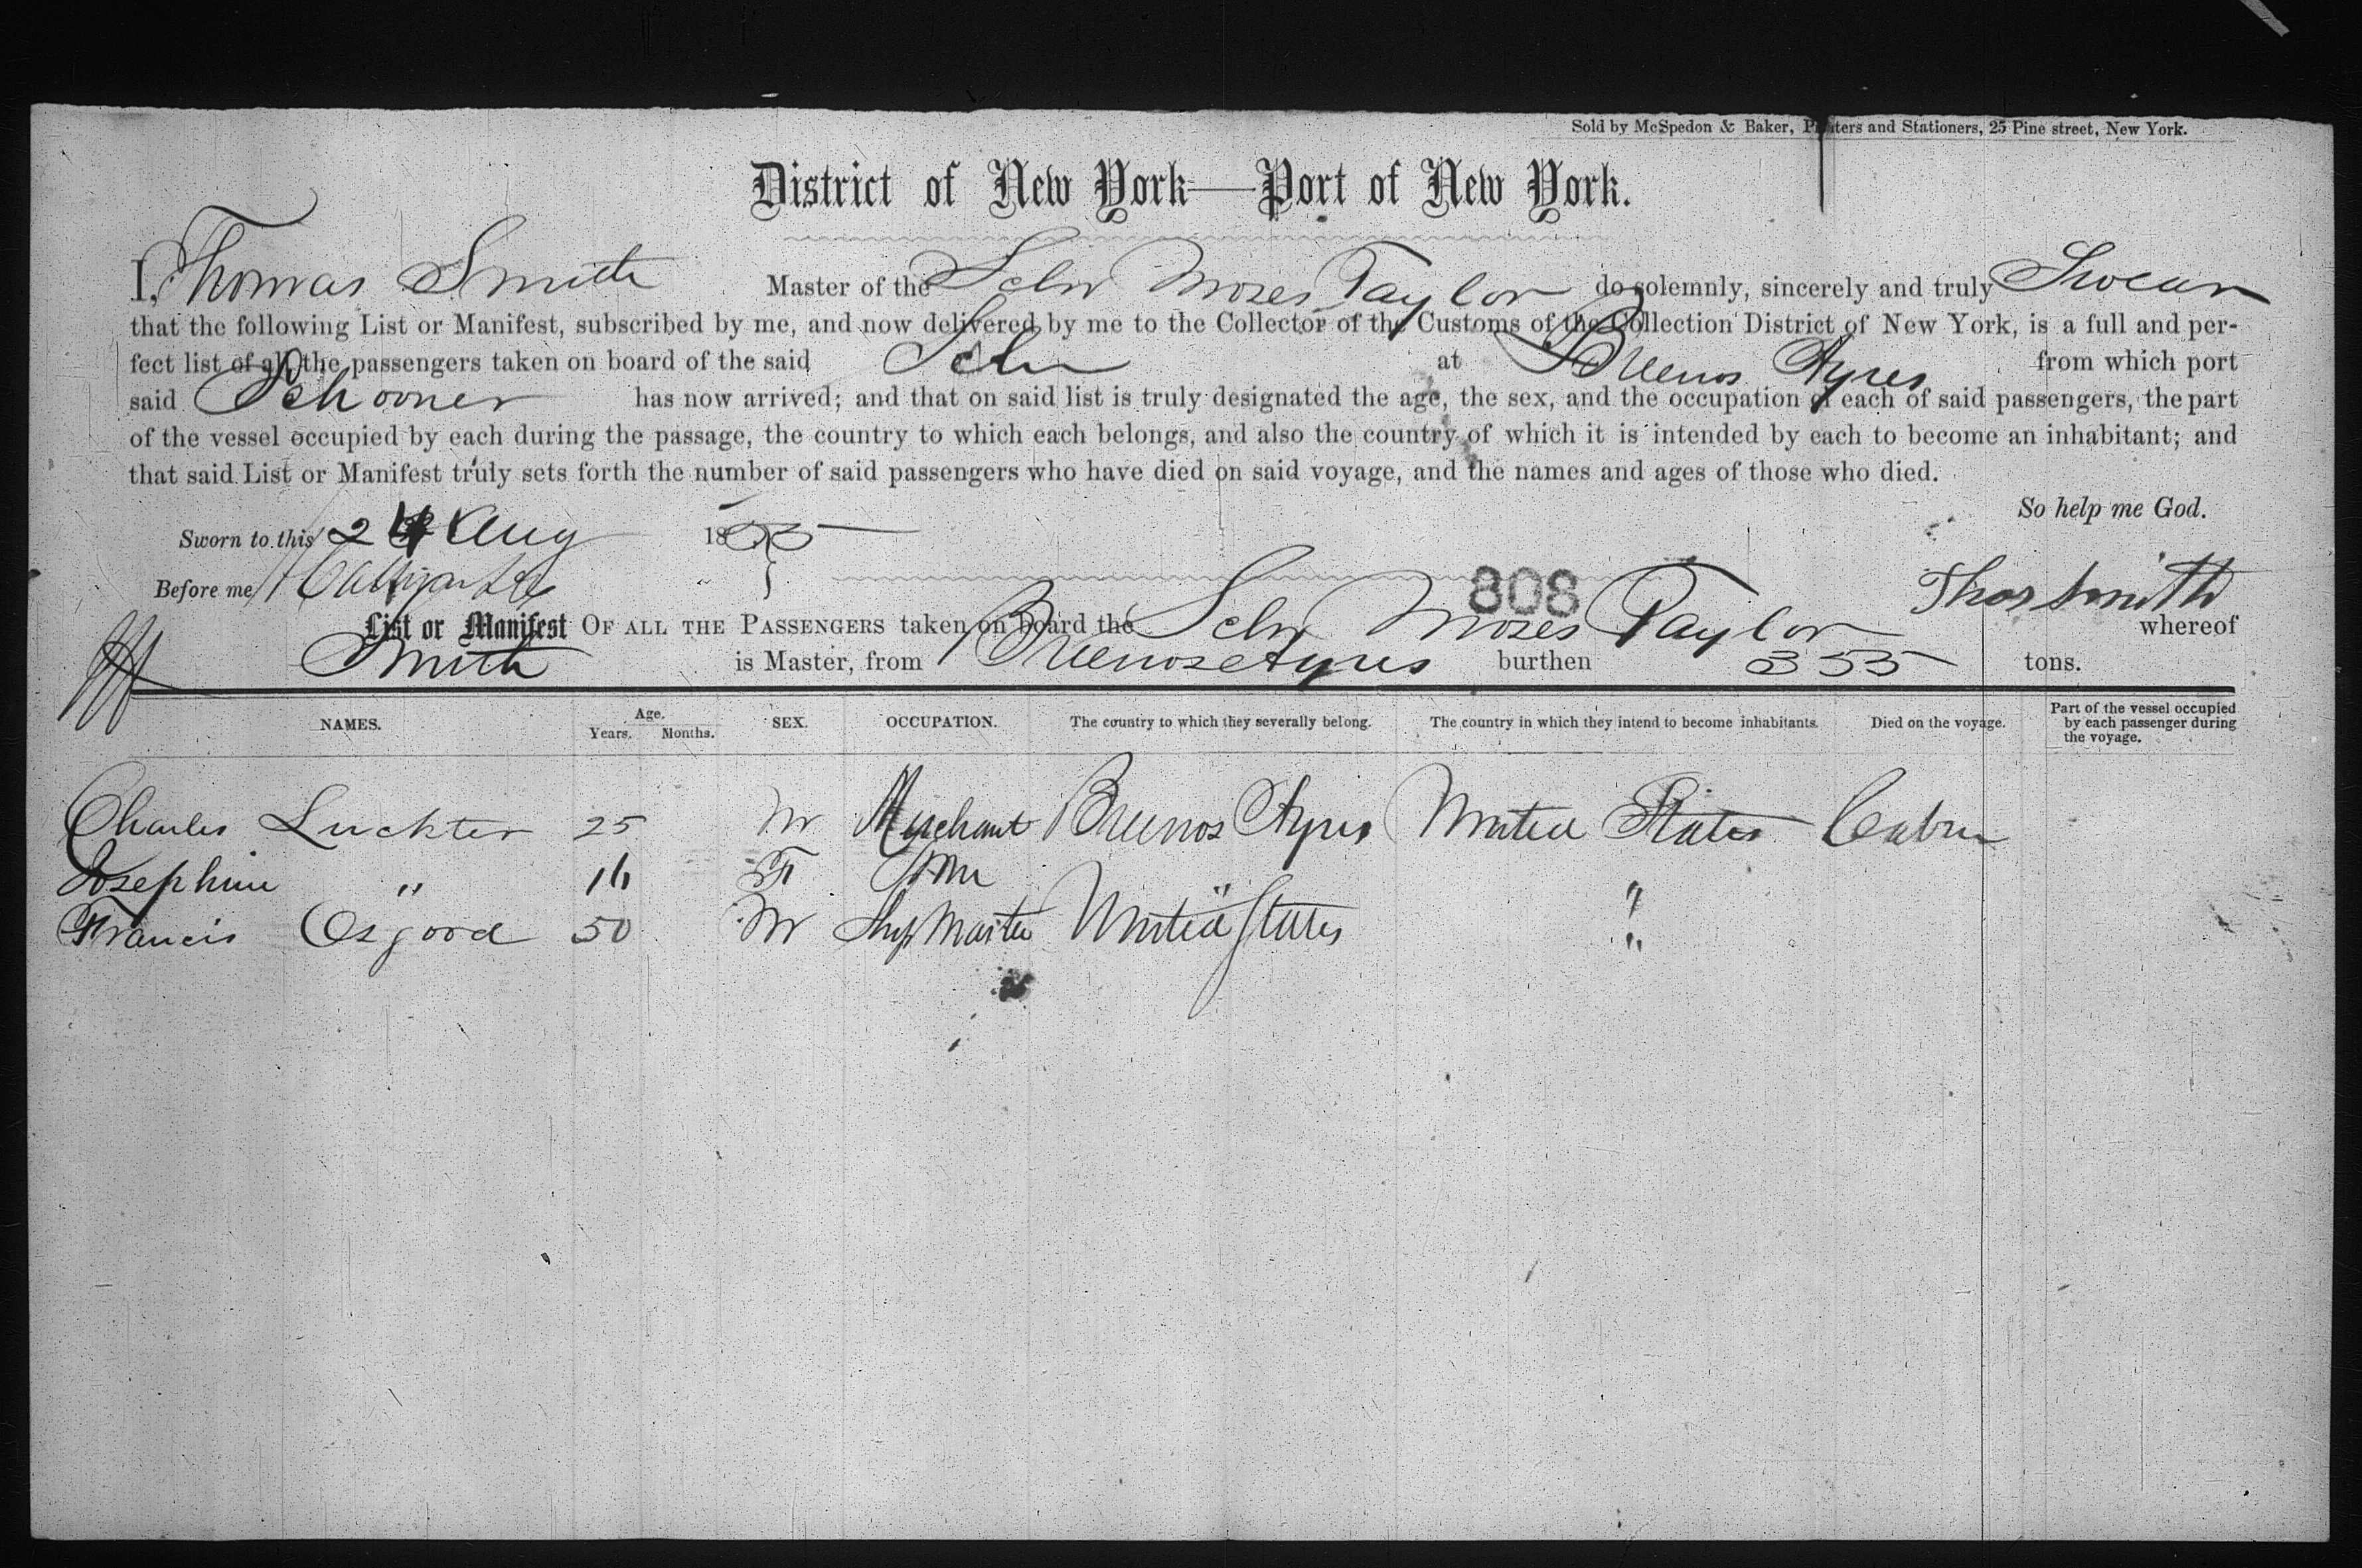 Sold by McSpedon & Baker, Printers and Stationers, 25 Pine street, New York.
District of New York—Port of New York.
I, Thomas Smith Master of the Schr Moses Taylor do solemnly, sincerely and truly Swear
that the following List or Manifest, subscribed by me, and now delivered by me to the Collector of the Customs of the Collection District of New York, is a full and per-
fect list of all the passengers taken on board of the said Schr at Buenos Ayres from which port
said Schooner has now arrived; and that on said list is truly designated the age, the sex, and the occupation of each of said passengers, the part
of the vessel occupied by each during the passage, the country to which each belongs, and also the country of which it is intended by each to become an inhabitant; and
that said List or Manifest truly sets forth the number of said passengers who have died on said voyage, and the names and ages of those who died.
So help me God.
Sworn to this 24 Aug 1855
Before me
808
Thos Smith
List or Manifest OF ALL THE PASSENGERS taken on board the Schr Moses Taylor whereof
Smith is Master, from Buenos Ayres burthen 355 tons.
NAMES. Age. Years. Months. SEX. OCCUPATION. The country to which they severally belong. The country in which they intend to become inhabitants. Died on the voyage. Part of the vessel occupied by each passenger during the voyage.
Charles Luchter 25 M Merchant Buenos Ayres United States Cabin
Josephine " 16 F " "
Francis Osgood 50 M Ship Master United States "